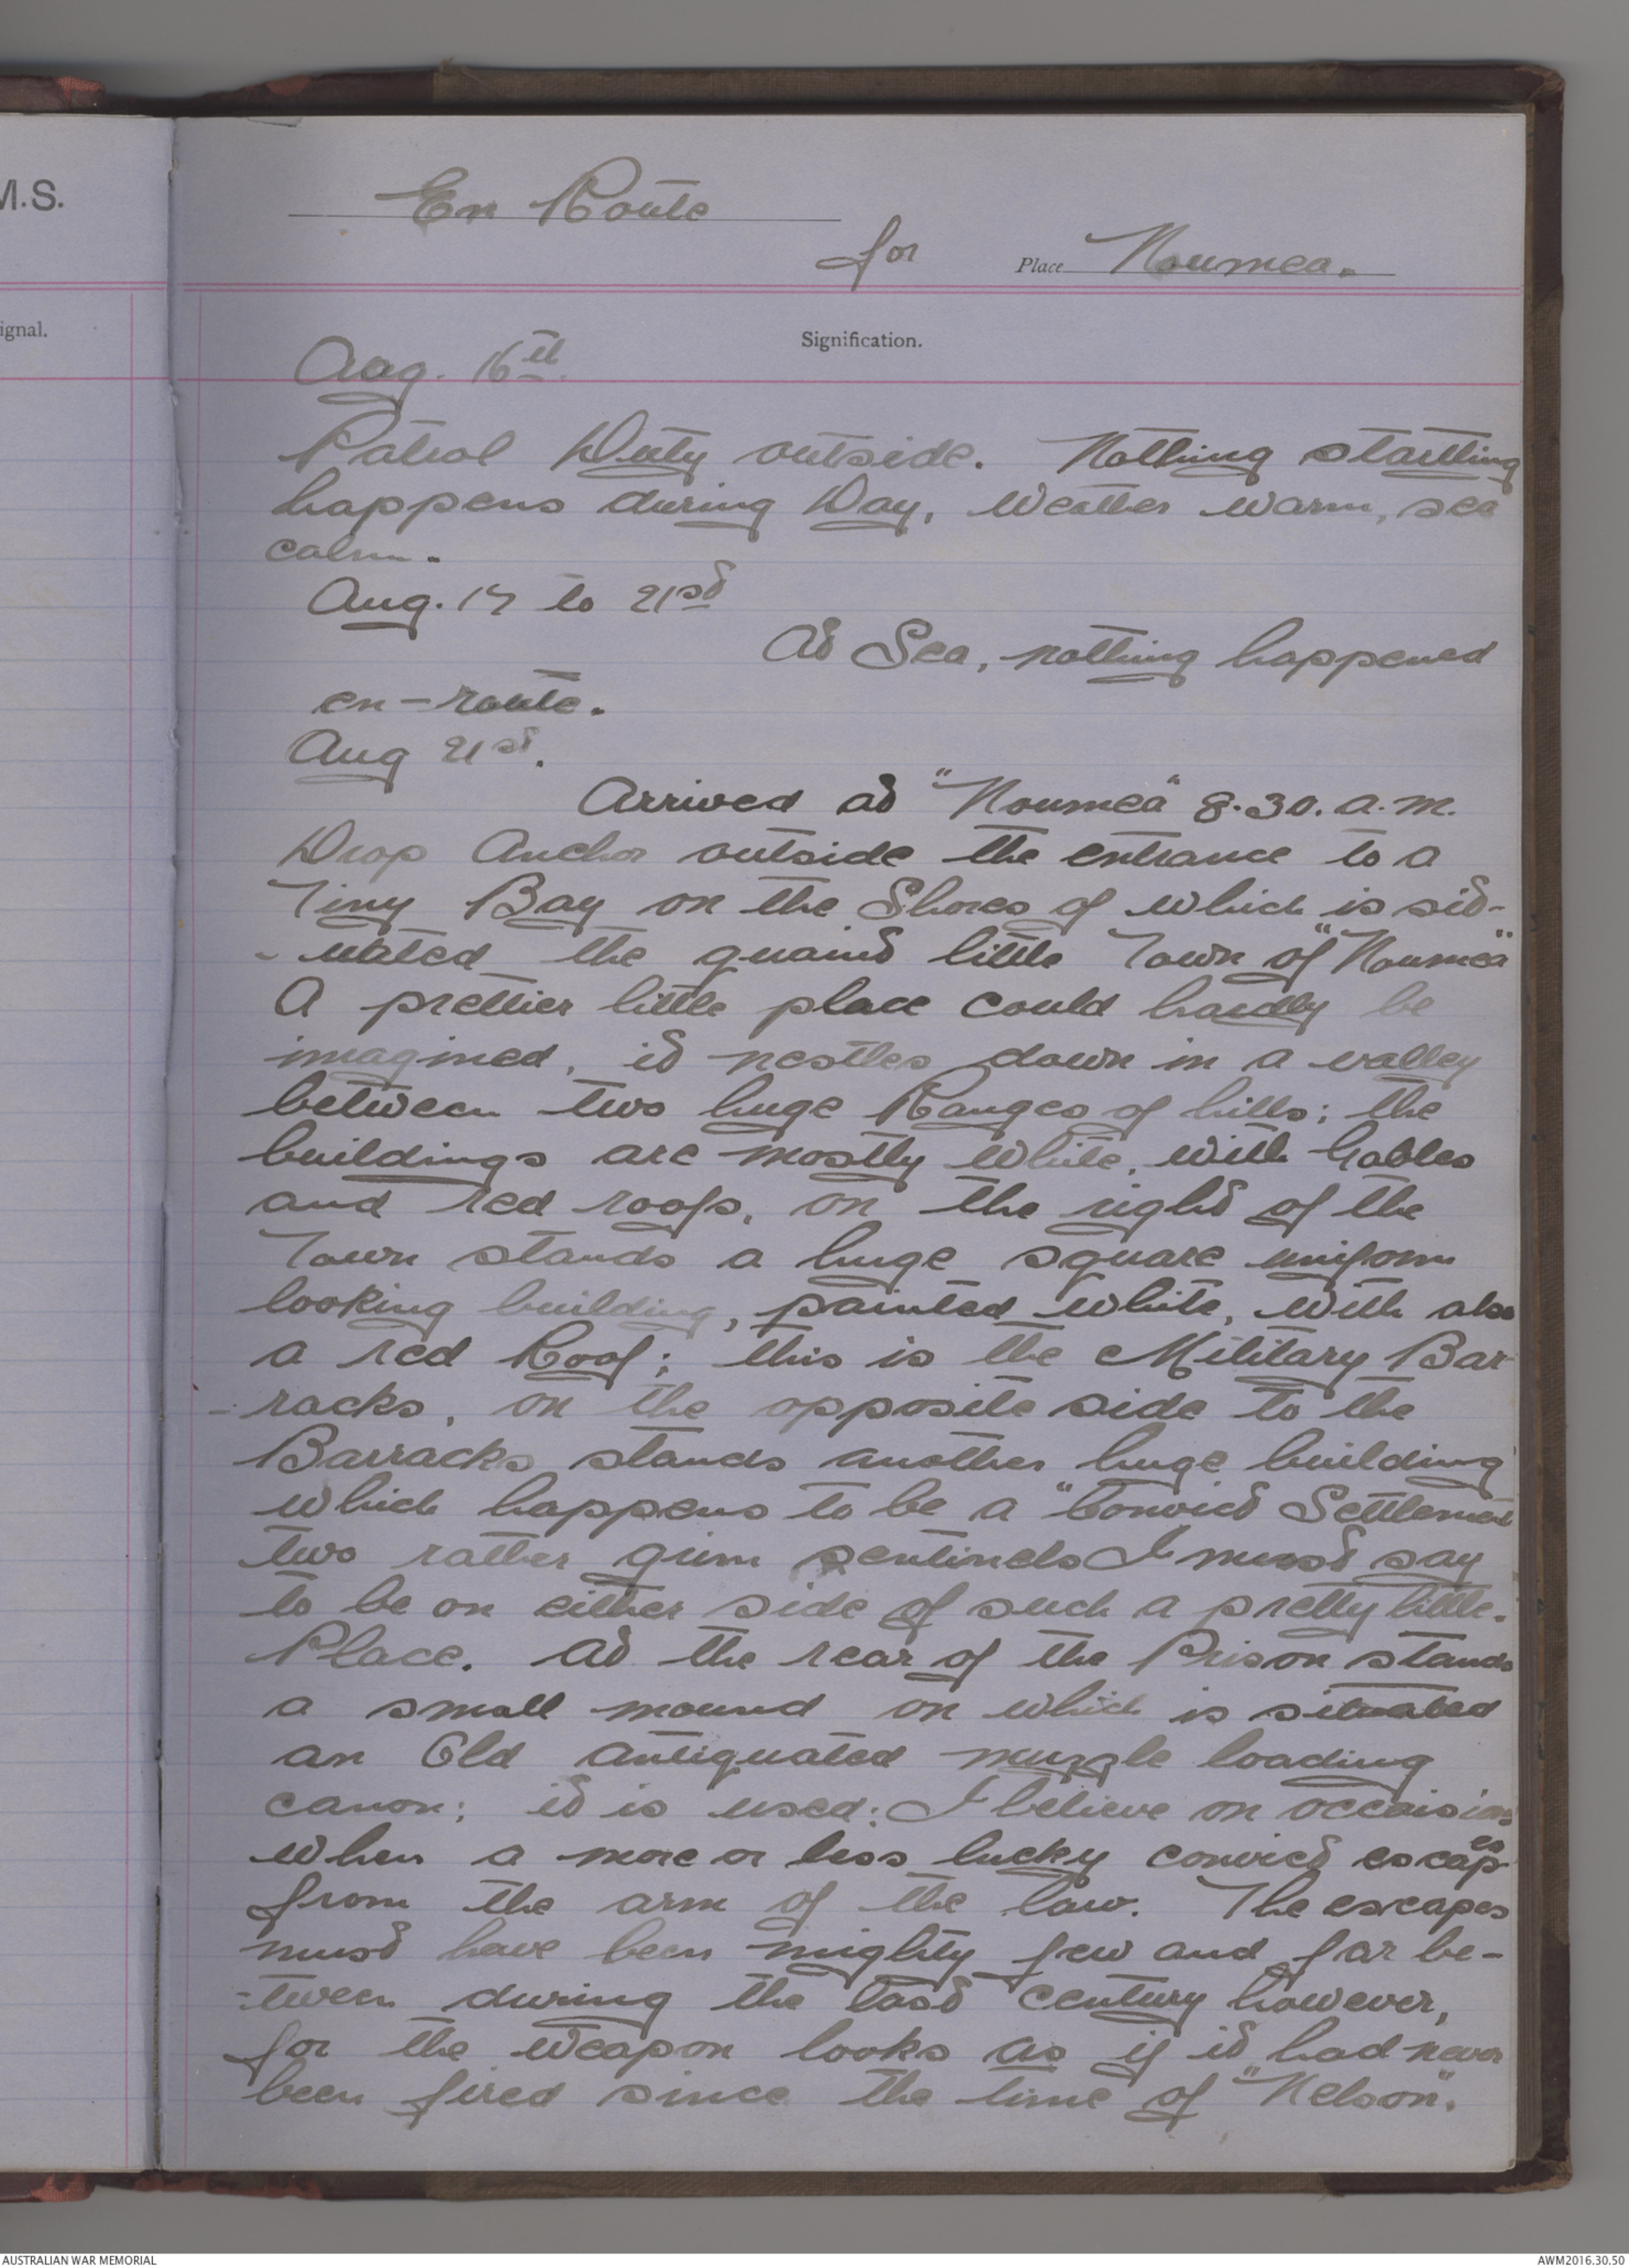 M.S.
ignal.
En Route
for Place Noumea.
Signification.
Aug. 16th.
Patrol Duty outside. Nothing startling
happens during Day, weather warm, sea
calm.
Aug. 17 to 21st
At Sea, nothing happened
en-route.
Aug 21st.
Arrived at "Noumea" 8.30. a.m.
Drop Anchor outside the entrance to a
Tiny Bay on the Shores of which is sit-
-uated the quaint little Town of "Noumea"
A prettier little place could hardly be
imagined, it nestles down in a valley
between two huge Ranges of hills; the
buildings are mostly white, with Gables
and red roofs, on the right of the
Town stands a huge square uniform
looking building, painted white, with also
a red Roof; this is the Military Bar
-racks, on the opposite side to the
Barracks stands another huge building
which happens to be a "Convict Settlement
two rather grim sentinels I must say
to be on either side of such a pretty little.
Place. At the rear of the Prison stands
a small mound on which is situated
an Old antiquated muzzle loading
canon; it is used: I believe on occaisions
when a more or less lucky convict escapes
from the arm of the law. The escapes
must have been mighty few and far be-
-tween during the last century however,
for the weapon looks as if it had never
been fired since the time of "Nelson".
AUSTRALIAN WAR MEMORIAL
AWM2016.30.50